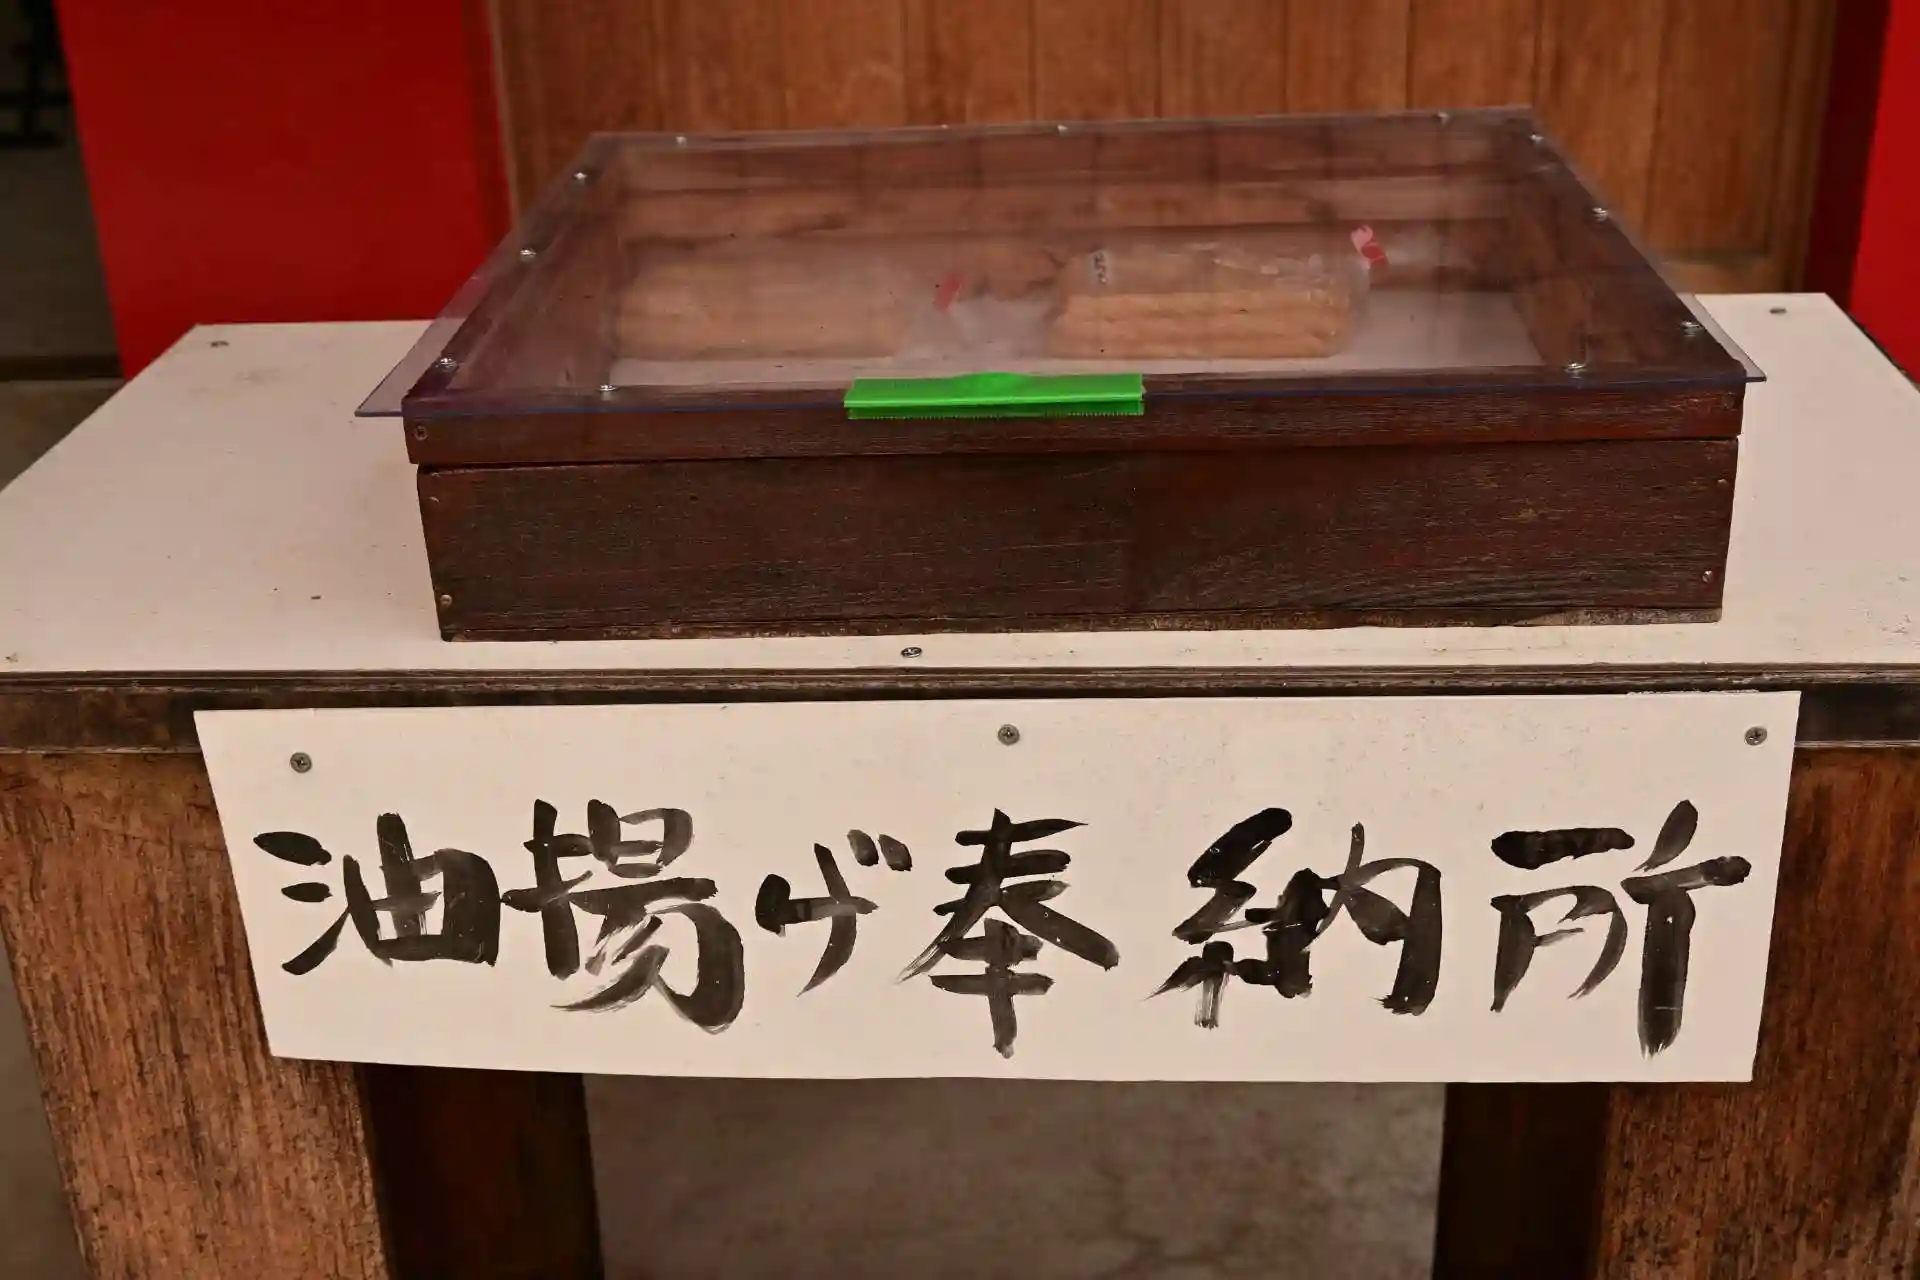 油揚げ奉納所